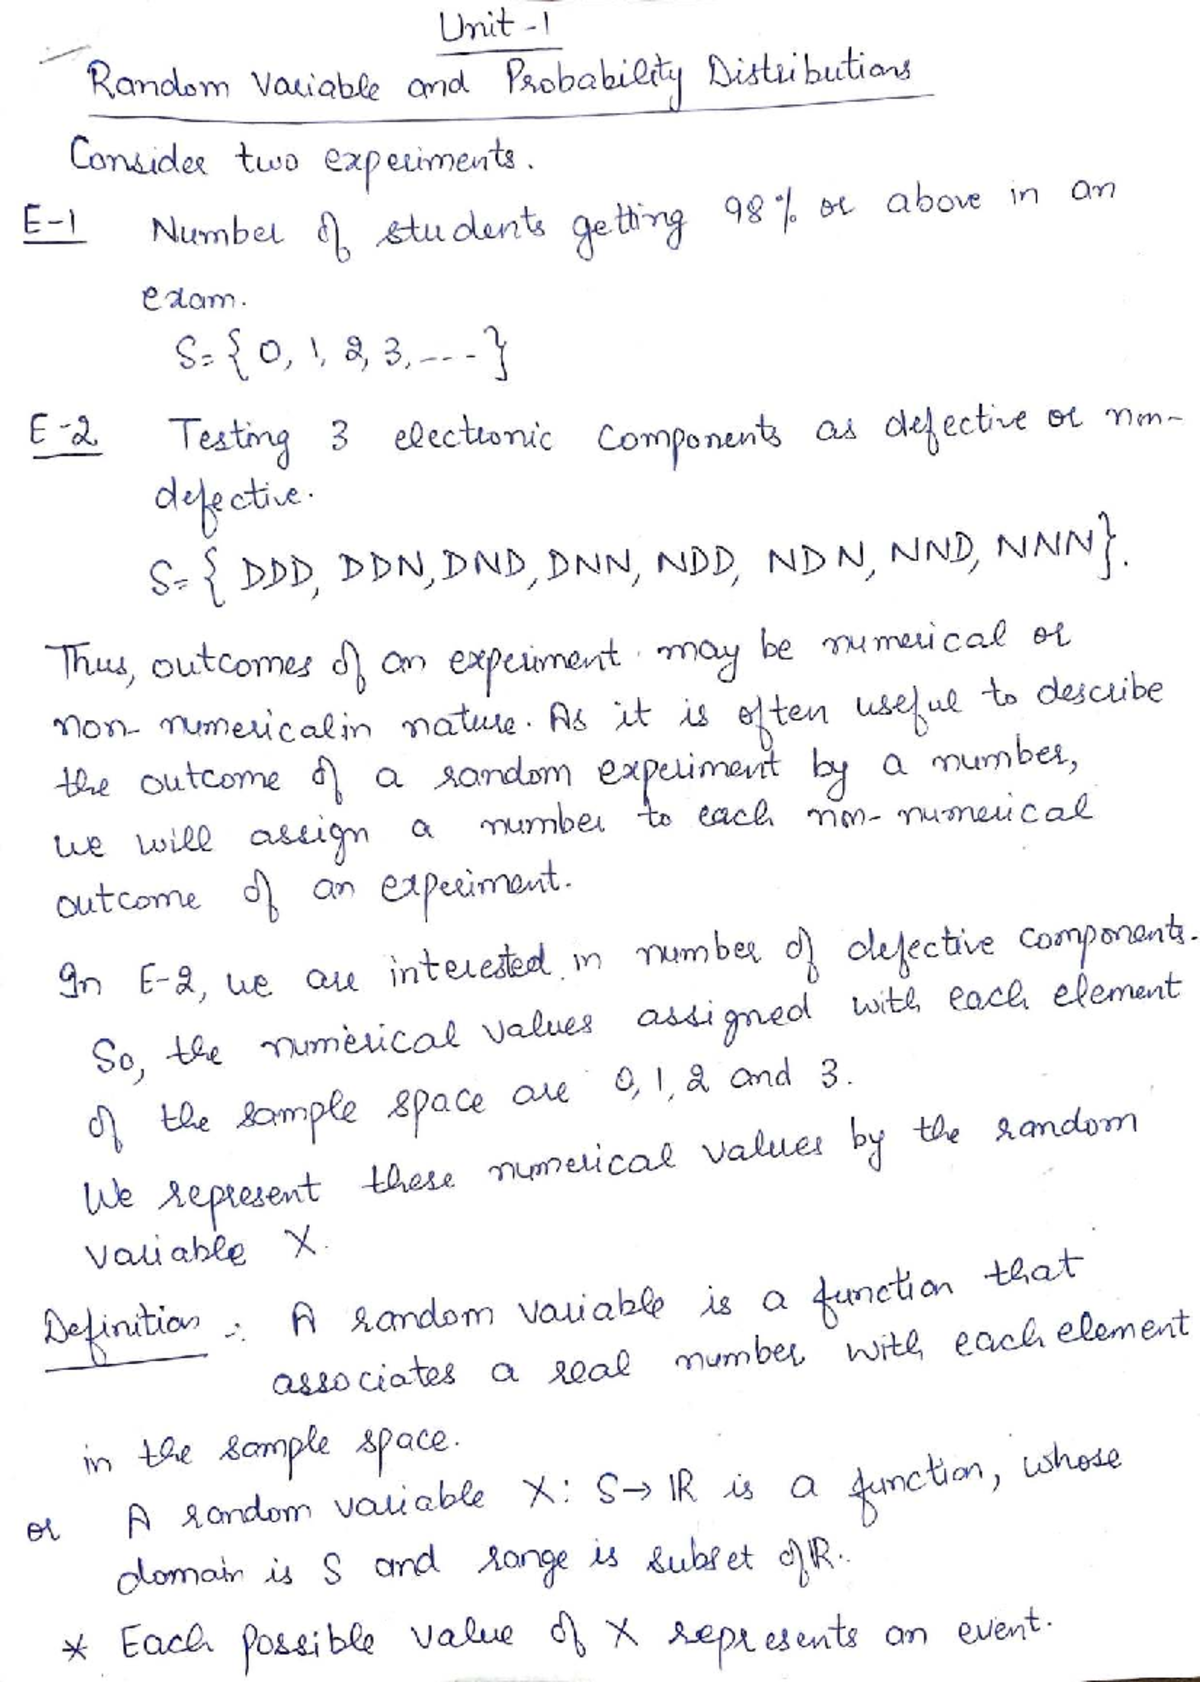 Unit-1
Random Variable and Probability Distributions
Consider two experiments.
E-1 Number of students getting 98% or above in an
exam.
S={0, 1, 2, 3, ----}
E-2 Testing 3 electronic components as defective or non-
defective.
S={ DDD, DDN, DND, DNN, NDD, NDN, NND, NNN}.
Thus, outcomes of an experiment may be numerical or
non-numerical in nature. As it is often useful to describe
the outcome of a random experiment by a number,
we will assign a number to each non-numerical
outcome of an experiment.
In E-2, we are interested in number of defective components.
So, the numerical values assigned with each element
of the sample space are 0, 1, 2 and 3.
We represent these numerical values by the random
variable X.
Definition :- A random variable is a function that
associates a real number with each element
in the sample space.
or A random variable X: S→ℝ is a function, whose
domain is S and range is subset of ℝ.
* Each possible value of X represents an event.